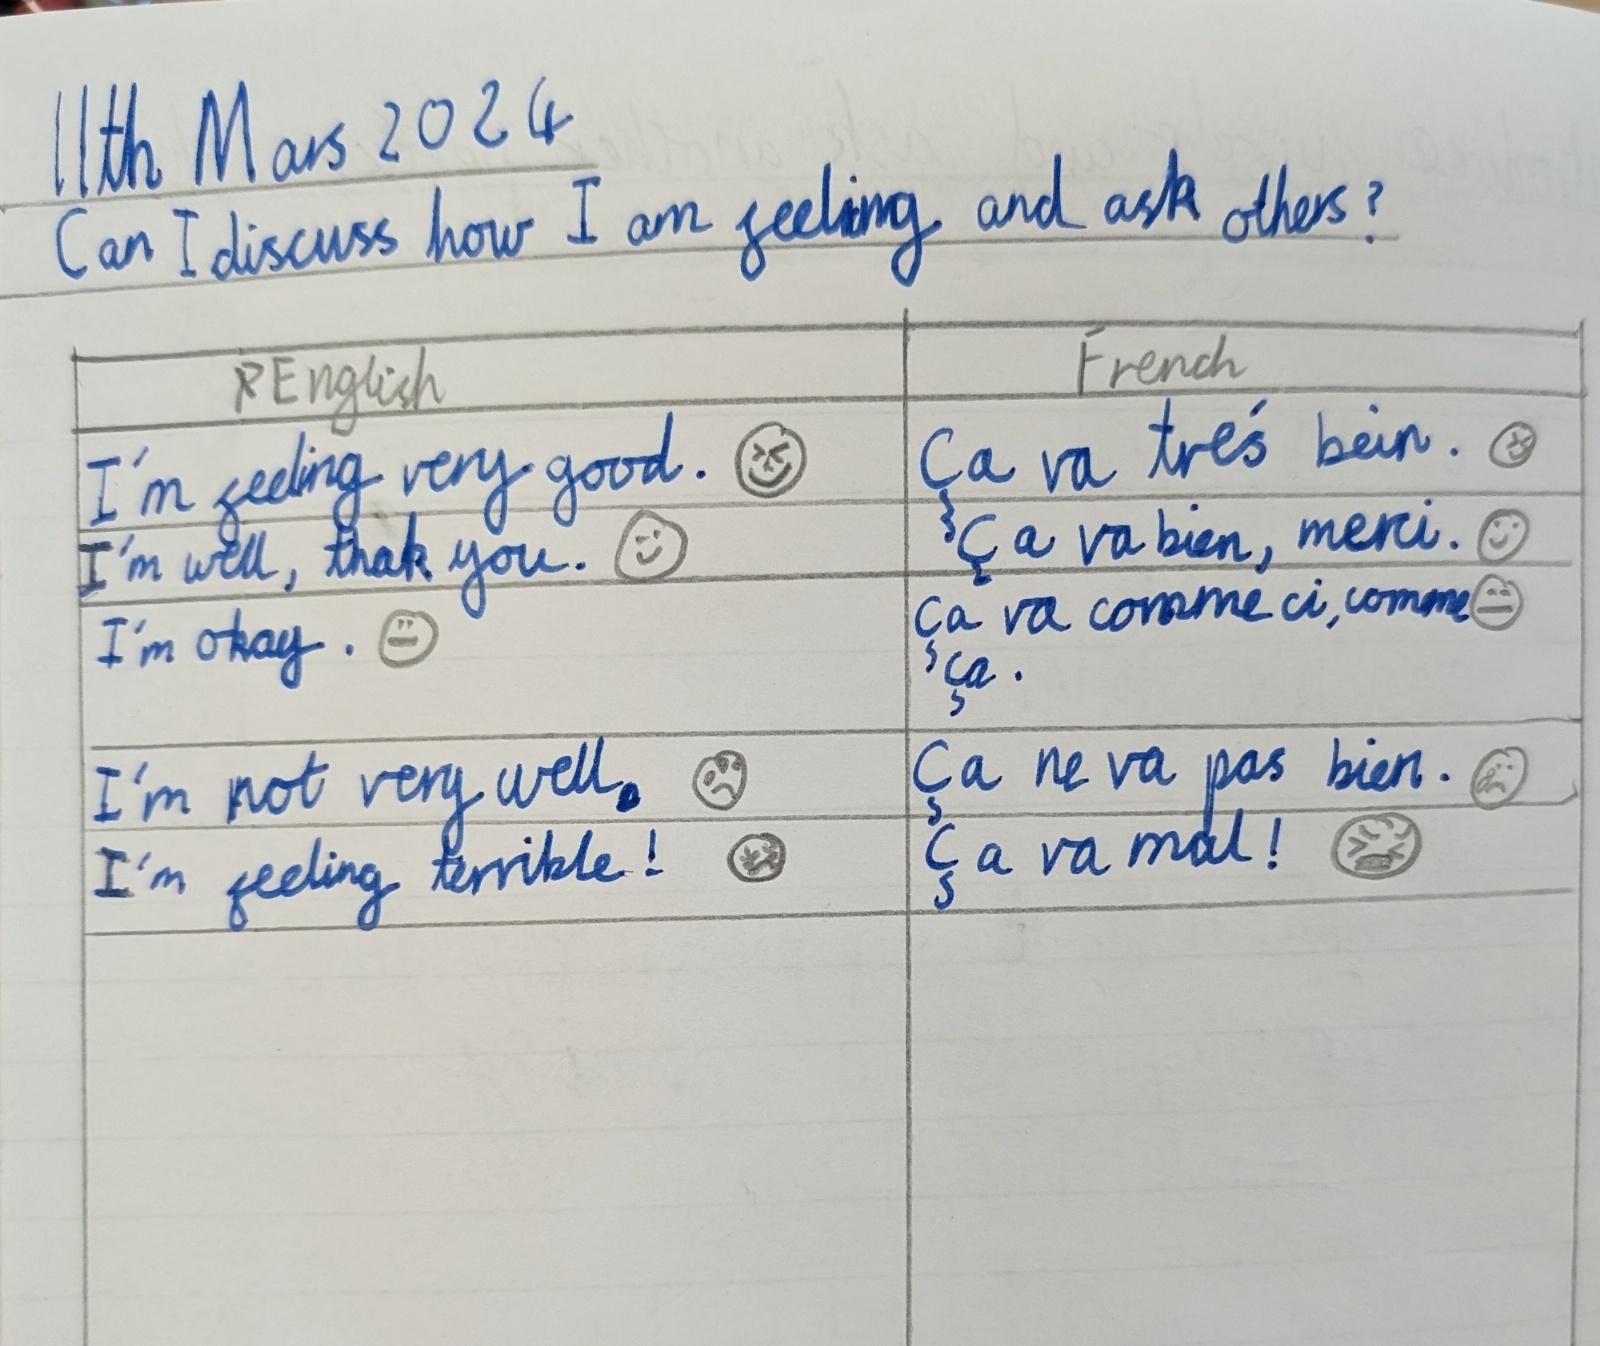 11th Mars 2024
Can I discuss how I am feeling and ask others?
English French
I'm feeling very good. Ça va treś bein.
I'm well, thak you. Ça va bien, merci.
I'm okay. Ça va comme ci, comme
ça.
I'm not very well. Ça ne va pas bien.
I'm feeling terrible! Ça va mal!